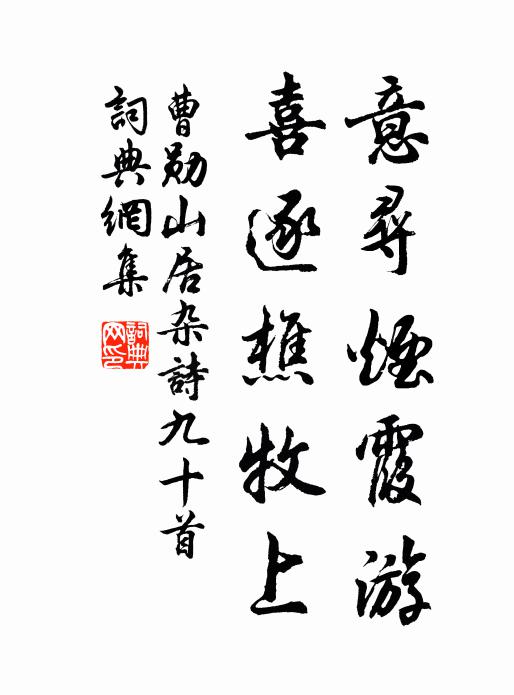 意尋煙霞游
喜逐樵牧上
曹勛山居杂詩九十首
詞典網集
詞典网印